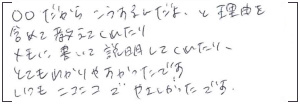 ○○だから こうなるんだよ、と 理由を
含めて 教えてくれたり
メモに 書いて 説明してくれたり、
とてもわかりやすかったです
いつも ニコニコ で やさしかった です.